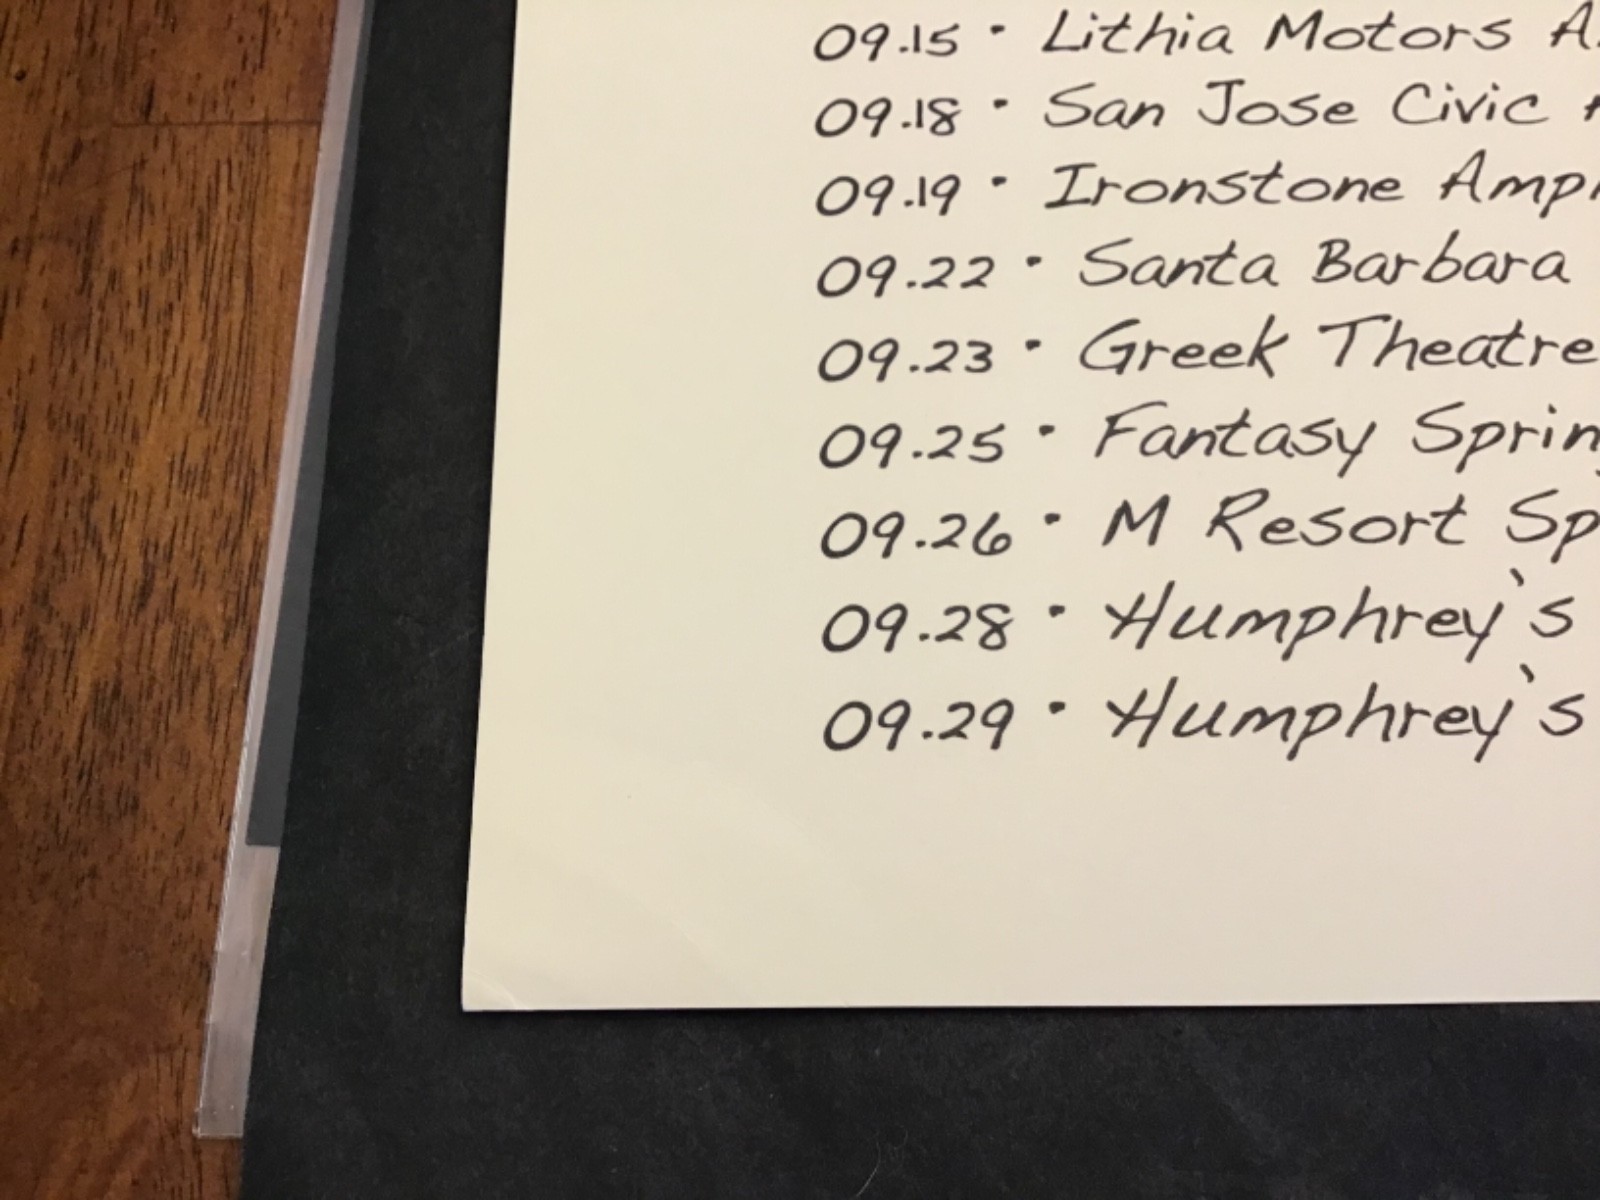 09.15 · Lithia Motors A
09.18 · San Jose Civic
09.19 · Ironstone Amp
09.22 · Santa Barbara
09.23 · Greek Theatre
09.25 · Fantasy Sprin
09.26 · M Resort Sp
09.28 · Humphrey's
09.29 · Humphrey's